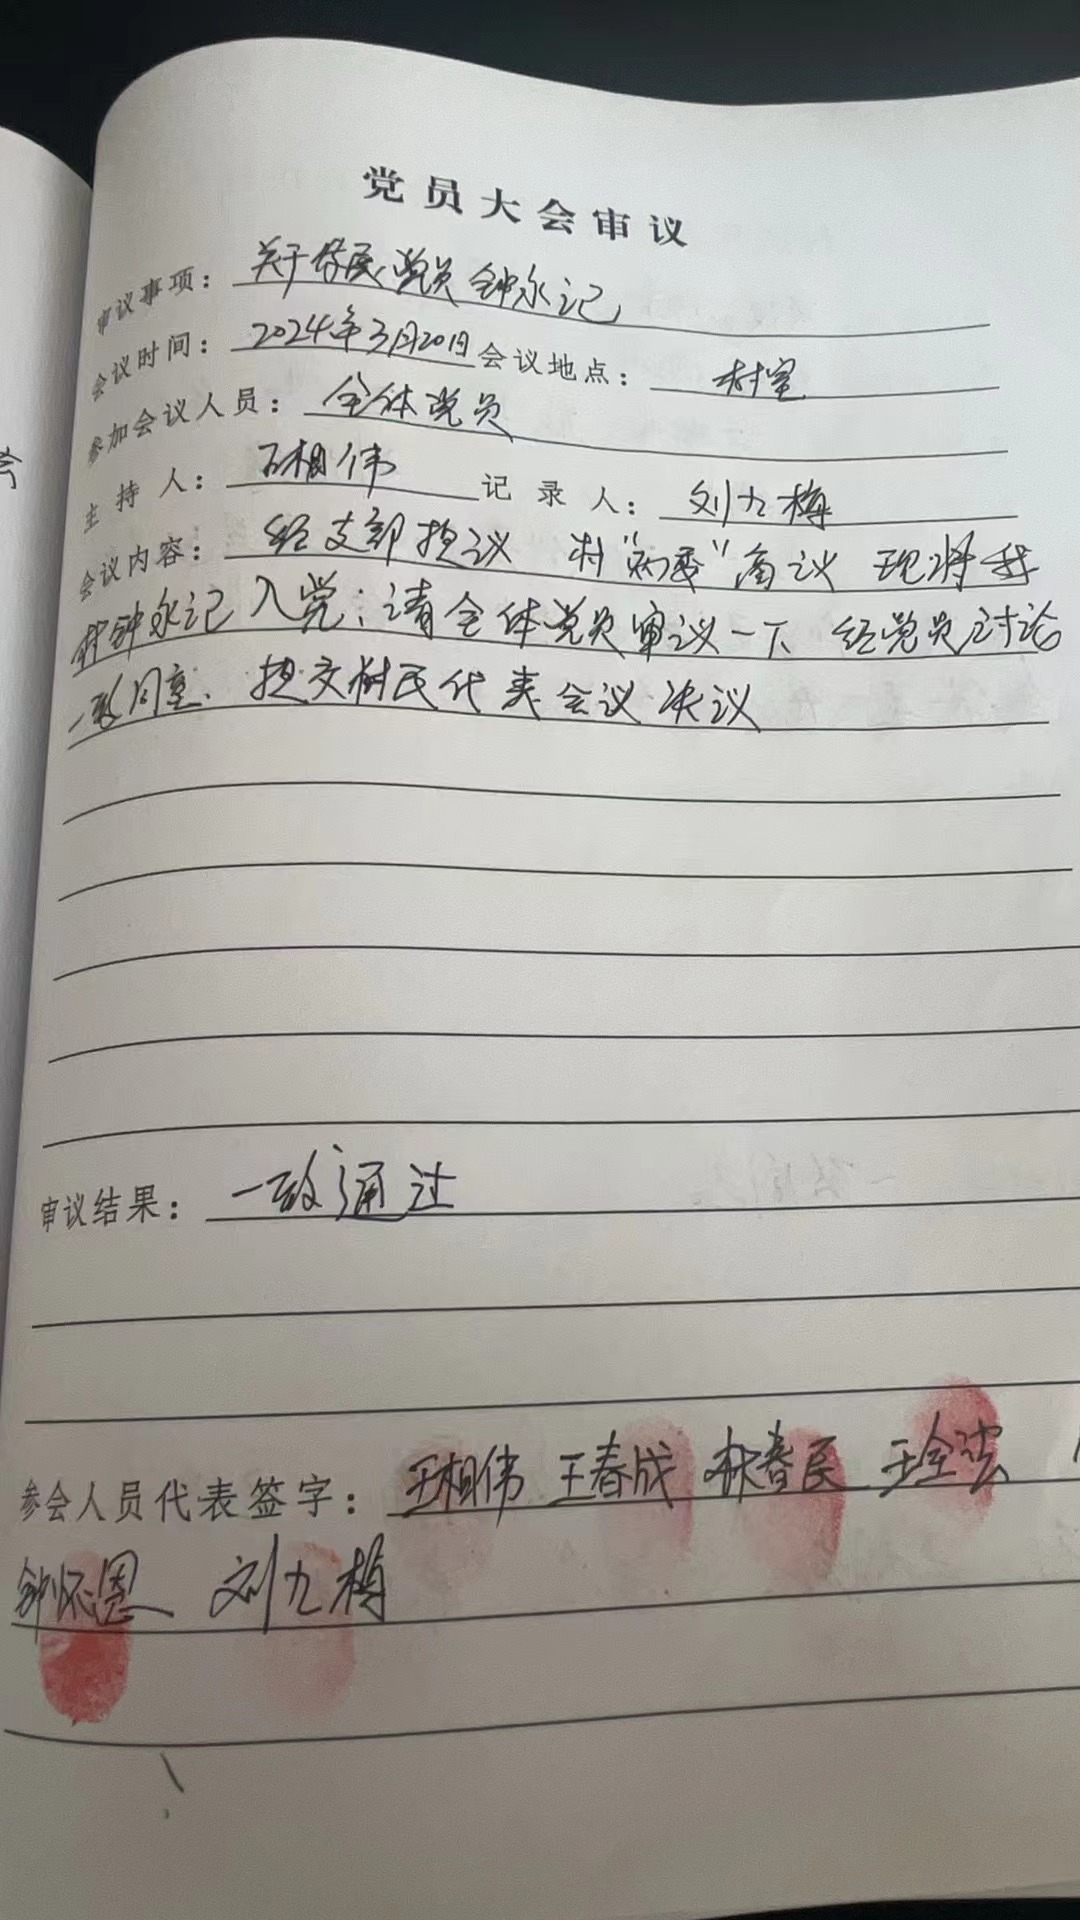 党员大会审议
审议事项：关于发展党员钟永记
会议时间：2024年3月20日 会议地点：村室
参加会议人员：全体党员
主持人：王相伟 记录人：刘九梅
会议内容：经支部提议 村“两委”商议 现将我
村钟永记入党；请全体党员审议一下 经党员讨论
一致同意、提交村民代表会议决议
审议结果：一致通过
参会人员代表签字：王相伟 王春成 春民 王全
钟怀恩 刘九梅
会